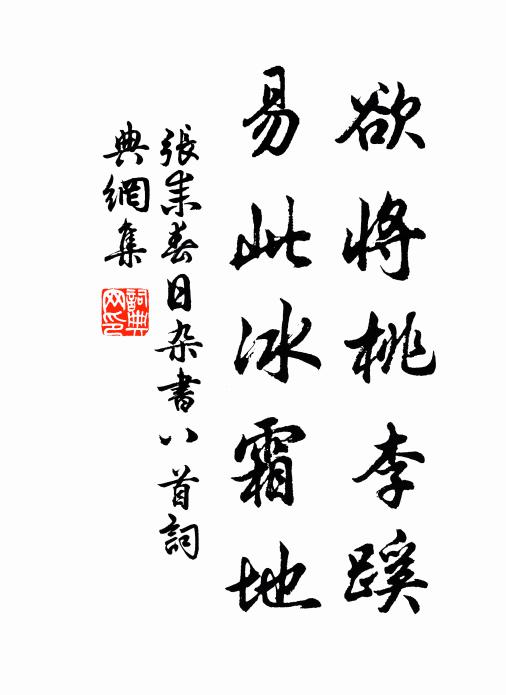 欲將桃李蹊
易此冰霜地
張耒春日杂書八首詞
典網集
詞典網印